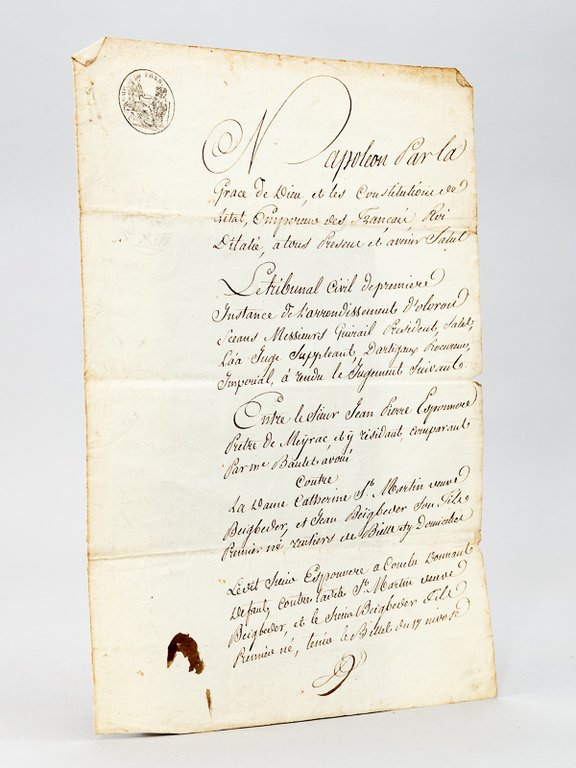 Napoleon Par la
Grace de Dieu, et les Constitutions de
letat, Empereur des Français, Roi
D'italie, a tous Present et avenir Salut
Le tribunal Civil de premiere
Instance de L'arrondissement d'oloron
Seans Messieurs Guirail President, Salet,
Laa Juge Suppleant, Dartigaux Procureur
Imperial, a rendu le Jugement Suivant
Entre le Sieur Jean Pierre Esponnere
Prêtre de Meyrac, et y residant, comparant
Par me Bautet avoué
Contre
La Dame Catherine St Martin veuve
Beigbeder, et Jean Beigbeder Son fils
Premier né rentiers de Bielle et y Domiciliés
Ledit Sieur Esponnere a Conclu Donnant
Defaut, Contre ladite St Martin veuve
Beigbeder, et le Sieur Beigbeder fils
Premier né, tenir le Billet du 17 nivose